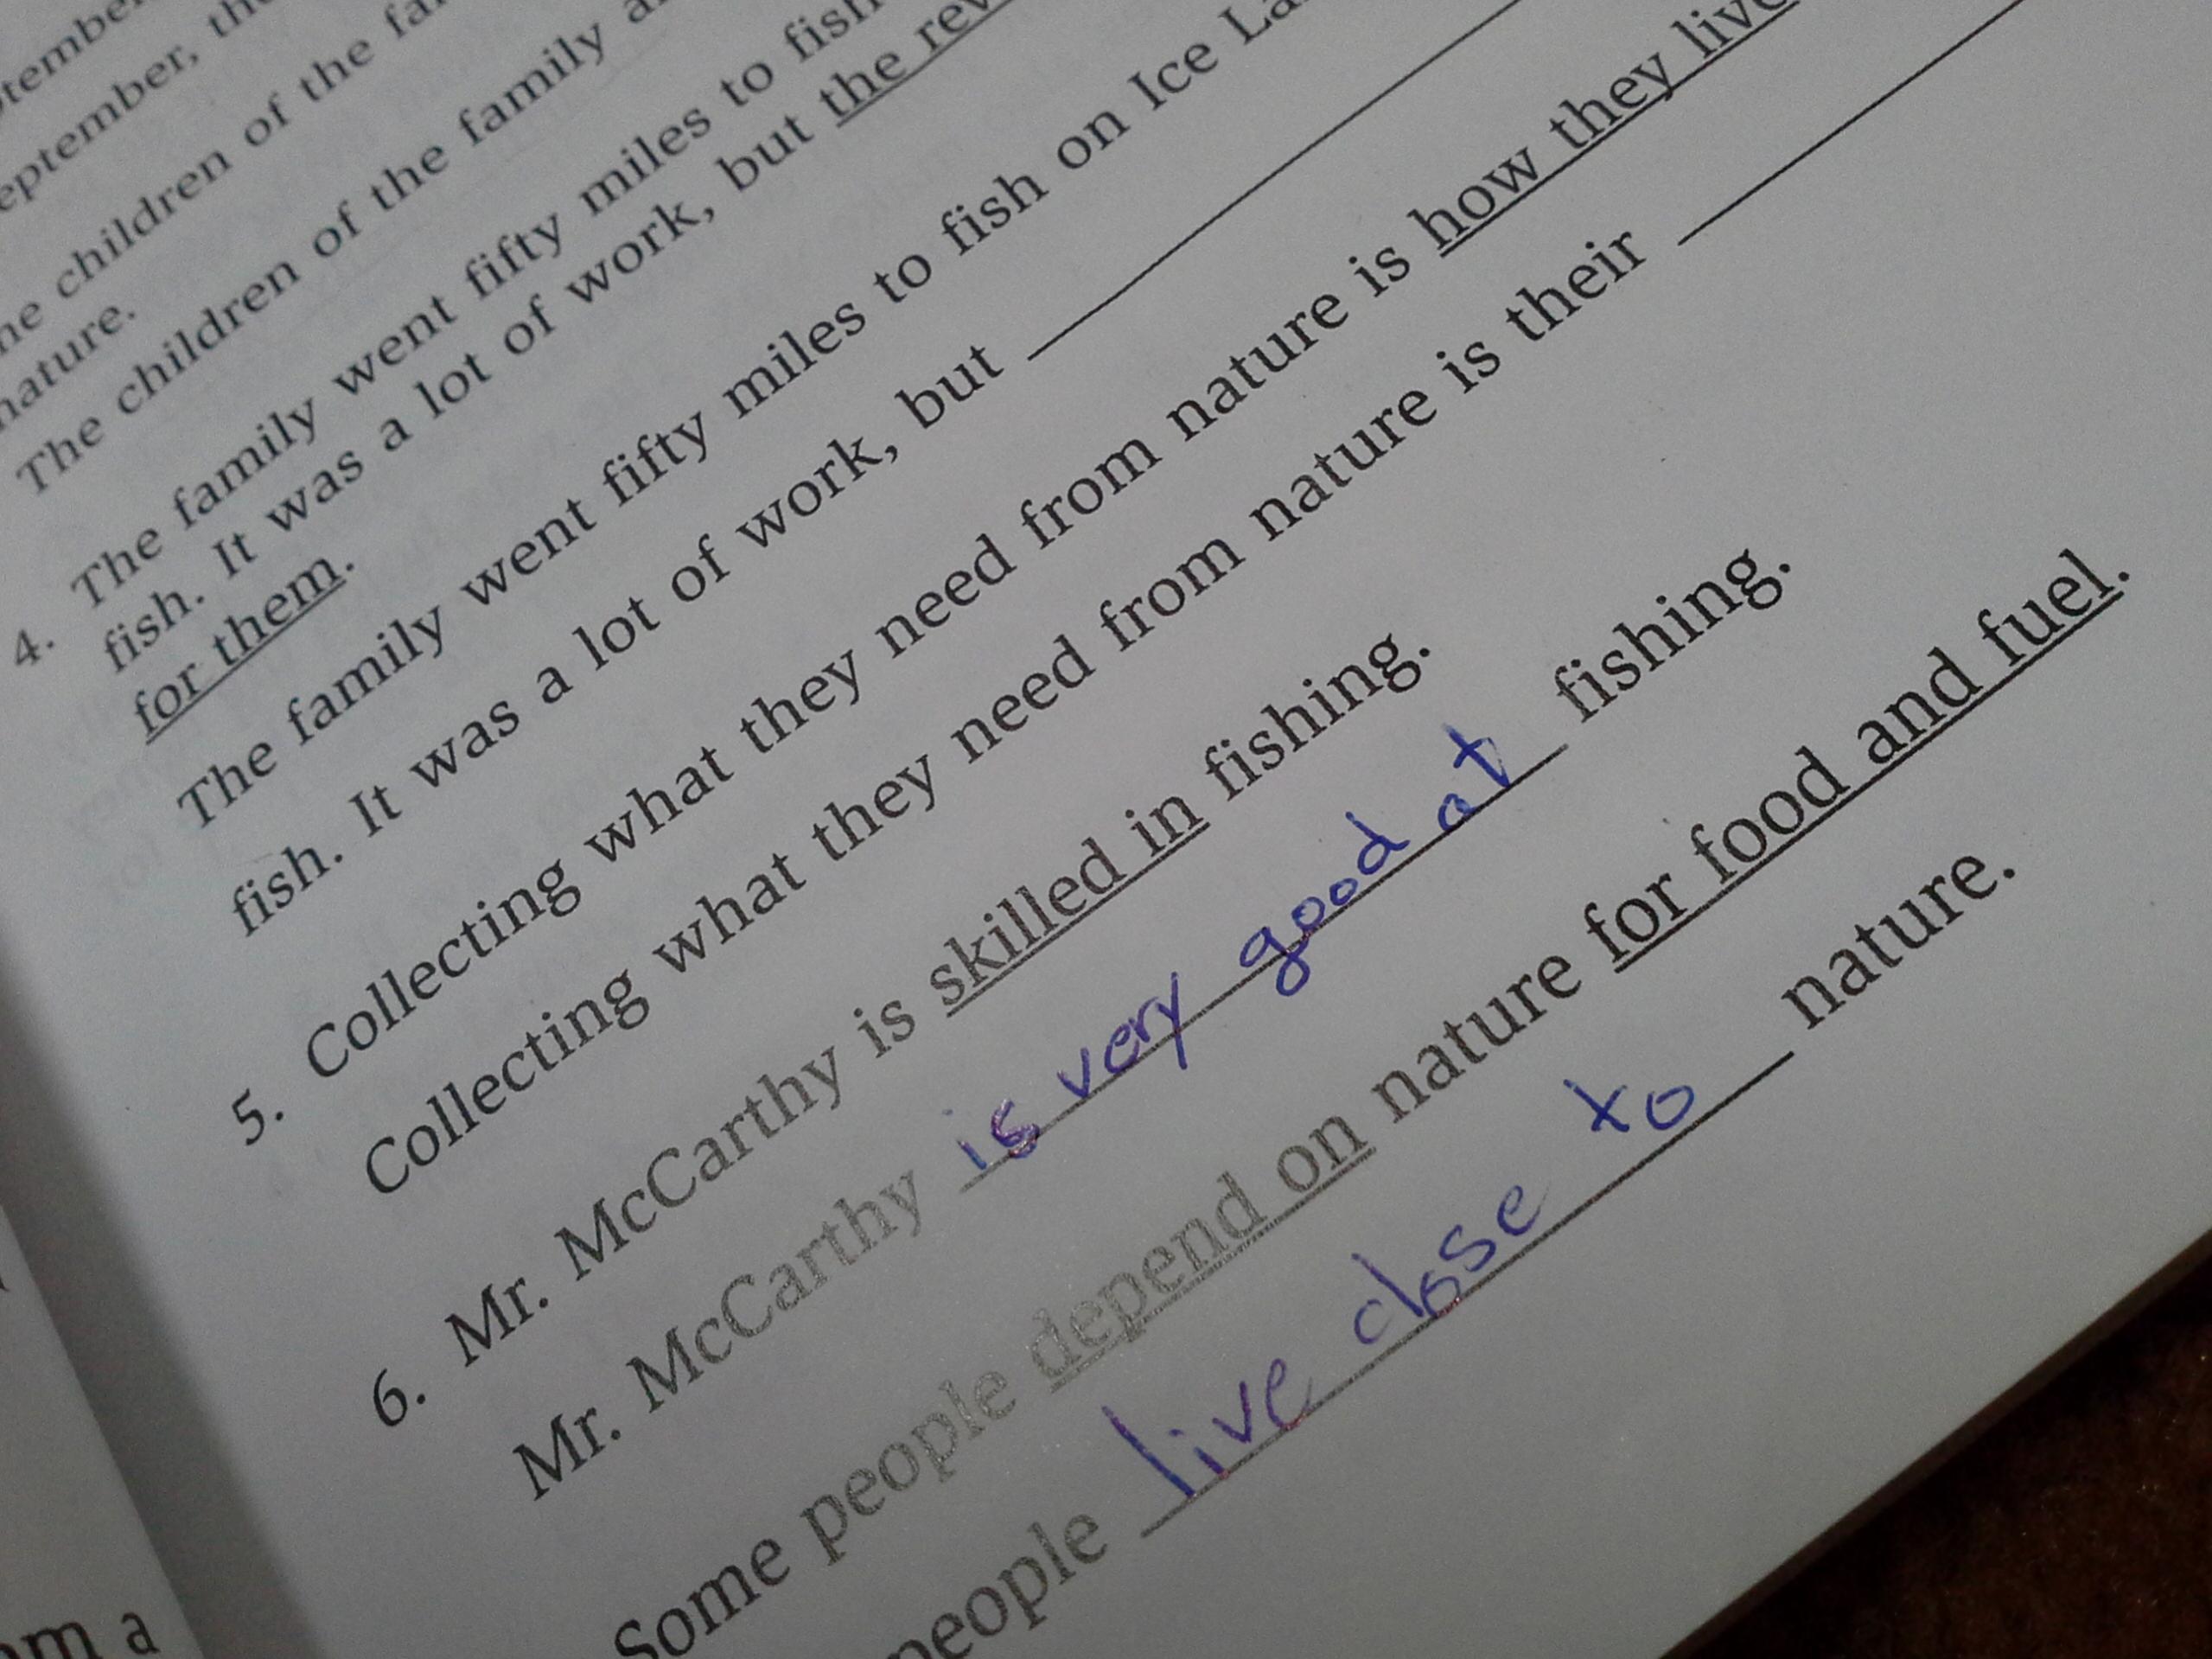 september, the
the children of the
nature.
The children of the family
4. The family went fifty miles to fish
fish. It was a lot of work, but the
for them.
The family went fifty miles to fish on Ice
fish. It was a lot of work, but
5. Collecting what they need from nature is how they
Collecting what they need from nature is their
6. Mr. McCarthy is skilled in fishing.
Mr. McCarthy is very good at fishing.
Some people depend on nature for food and fuel.
people live close to nature.
a